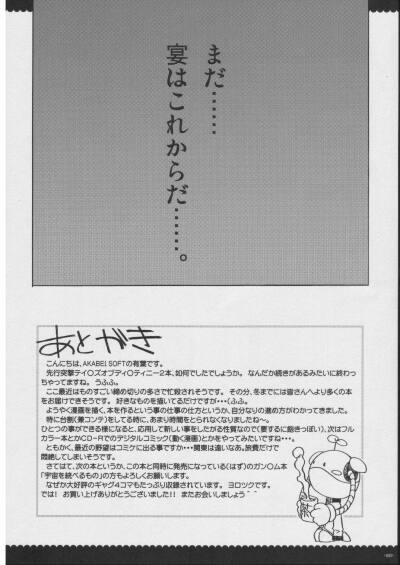 まだ……
宴はこれからだ……。
あとがき
こんにちは、AKABEI SOFTの有葉です。
先行突撃テイ〇ズオブディ〇ティニー2本、如何でしたでしょうか。 なんだか続きがあるみたいに終わっ
ちゃってますね。うふふ。
ここ最近はものすごい締め切りの多さで忙殺されそうです。 その分、冬までには皆さんへより多くの本
をお届けできそうです。 好きなものを描いてるだけですが・・・(ふふ。
ようやく漫画を描く、本を作るという事の仕事の仕方というか、自分なりの進め方がわかってきました。
特に台割(兼コンテ)をしてる時に、あまり時間をとられなくなりましたね〜。
ひとつの事ができる様になると、応用して新しい事をしたがる性質なので(要するに飽きっぽい)、次はフル
カラー本とかCD-Rでのデジタルコミック(動く漫画)とかをやってみたいですね・・・。
ともかく、最近の野望はコミケに出る事ですか・・・関東は遠いなあ。旅費だけで
悶絶してしまいそうです。
さてはて、次の本というか、この本と同時に発売になっている(はず)のガン〇ム本
「宇宙を統べるもの」の方もよろしくお願いします。
なぜか大好評のギャグ4コマもたっぷり収録されています。 ヨロツクです。
では! お買い上げありがとうございました!! またお会いしましょう＾＾